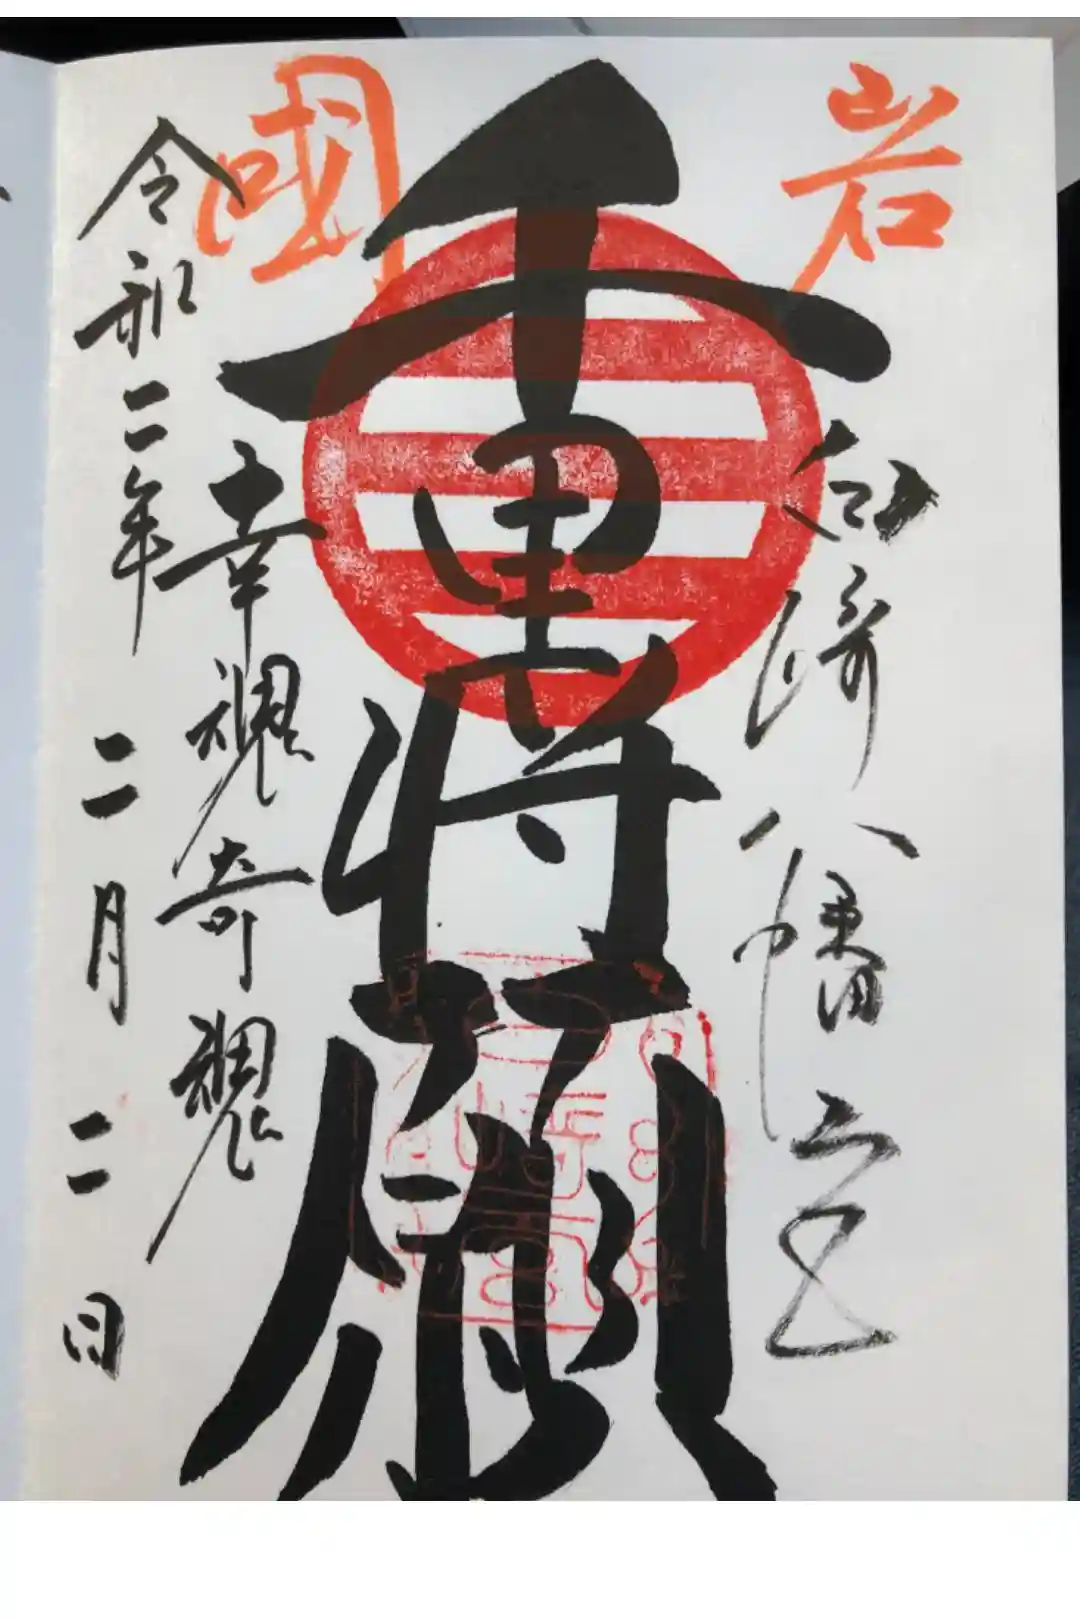 岩國
白崎八幡宮
重将
幸魂奇魂
令和二年二月二日